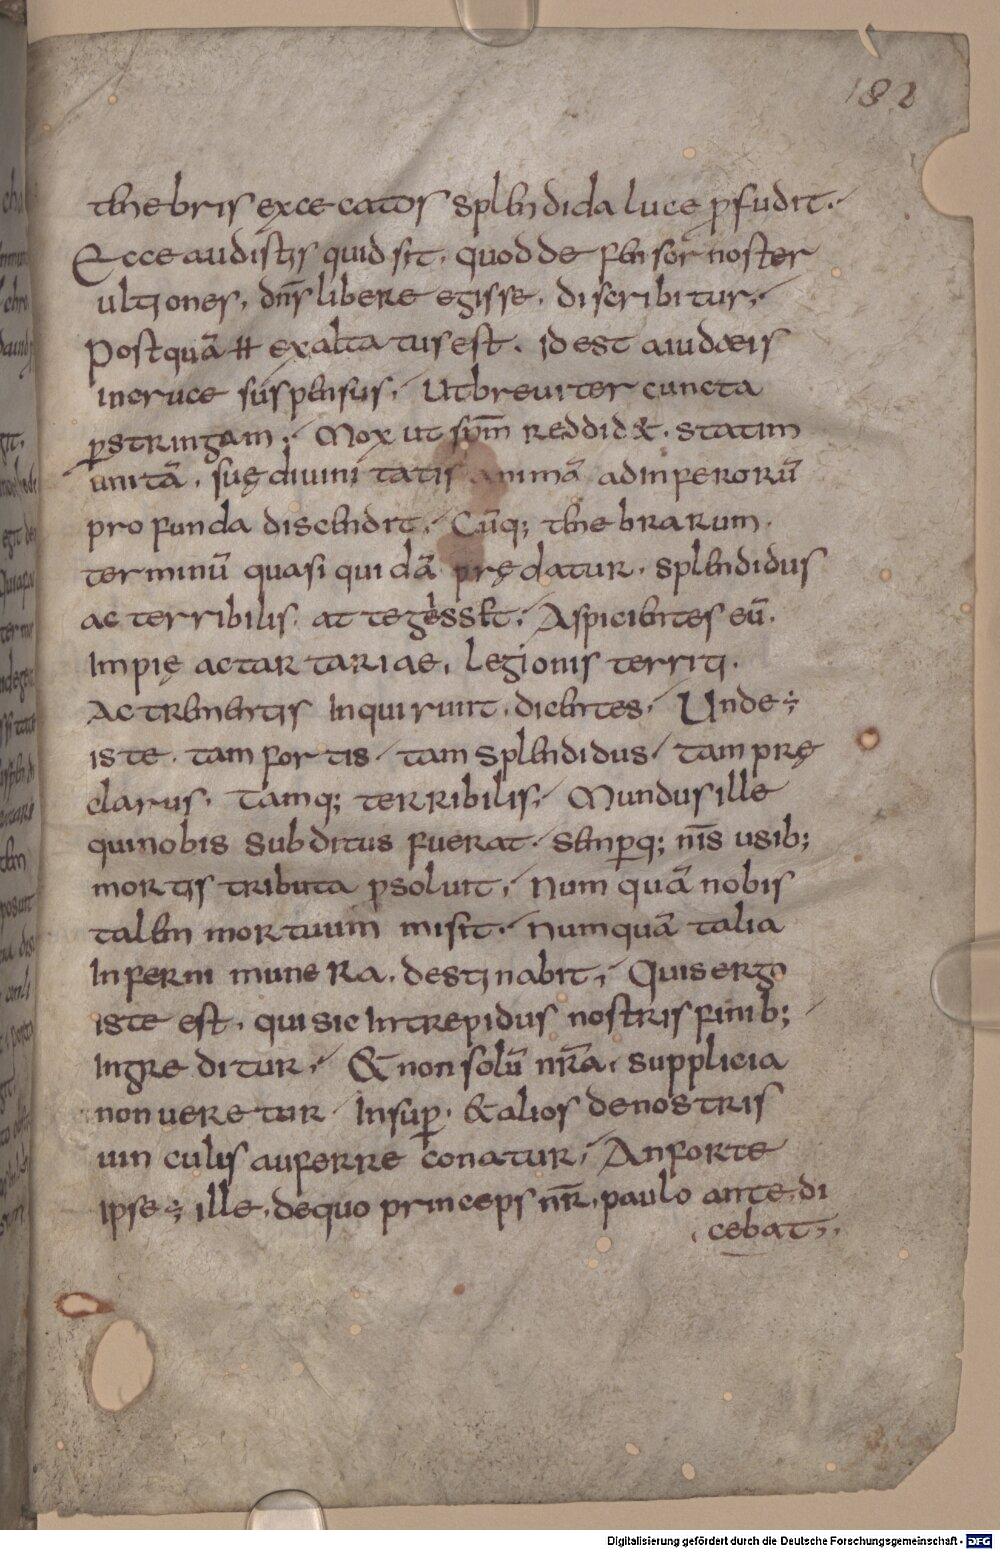 182
tenebris excecatos splendida luce pfudit.
Ecce audistis quid sit. quod defensor noster
ultiones, dn̄s libere egisse. discribitur;
Postquā ħ exaltatus est. id est a iudæis
in cruce suspensus; Ut breviter cuncta
p̱stringam; Mox ut sp̄m reddid&. statim
unitā. suę divinitatis animā ad inferorū
profunda discendit; Cūq; tenebrarum.
terminū quasi quidā prędatur. splendidus
ac terribilis. attegesset; Aspicientes eū.
Impię ac tartariae. legionis territi.
Ac trementis Inquirunt. dicentes; Unde ÷
iste. tam fortis. tam splendidus. tam prę
clarus. Tamq; terribilis; Mundus ille
qui nobis subditus fuerat. Semp̱q; nīs usib;
mortis tributa p̱solvit; Numquā nobis
talem mortuum misit. Numquā talia
Inferni munera. destinabit; Quis ergo
iste est. qui sic Intrepidus nostris finib;
Ingreditur; & non solū nr̄a. supplicia
non veretur. Insup̱. & alios de nostris
vinculis auferre conatur; An forte
ipse ÷ ille. de quo princeps nr̄. paulo ante. di
cebat;
Digitalisierung gefördert durch die Deutsche Forschungsgemeinschaft - DFG